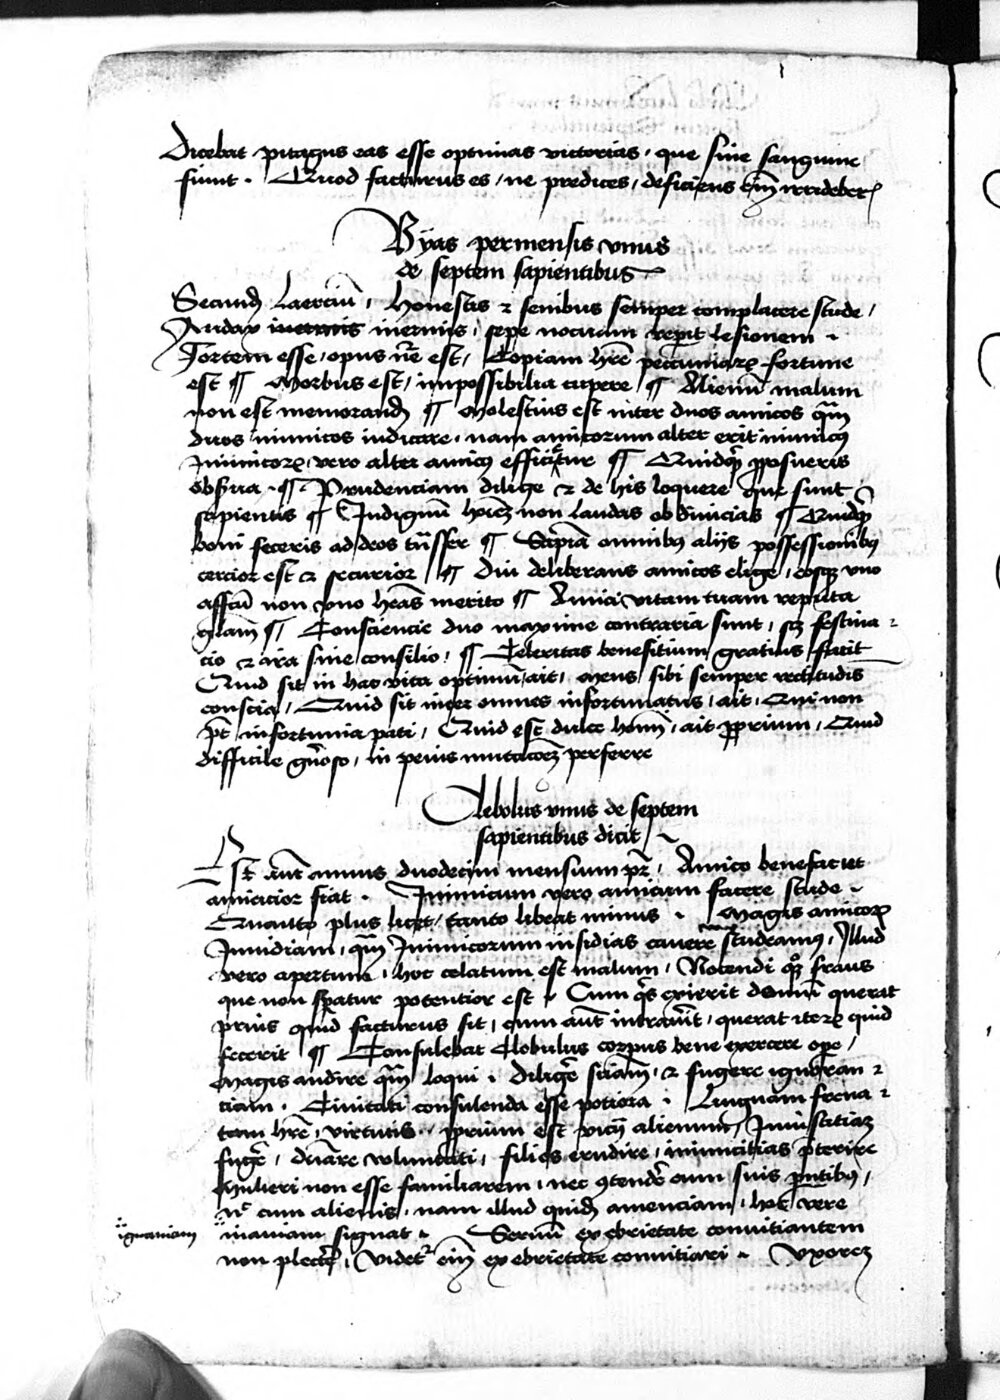 Dicebat pitagus eas esse optimas victorias, que sine sanguine
fiunt. Quod facturus es, ne predices, deficiens em̄ irrideber
Byas permensis vnus
de septem sapientibus
Secund Laerciū, Honestis et senibus semper complacere stude,
Audax inermis, sepe nociuam repit lesionem.
Fortem esse, opus nrē est, Copiam hrē pecuniarꝝ fortune
est ¶ Morbus est, impossibilia cupere ¶ Alienū malum
non est memorand ¶ Molestius est inter duos amicos qm̄
duos inimicos iudicare, nam amicorum alter erit inimicꝰ
Inimicorꝝ vero alter amicꝰ efficietur ¶ Quidqꝫ pposueris
obsrua ¶ Prudenciam dilige et de his loquere que sunt
sapientis ¶ Indignū hoīeꝫ non laudas ob diuicias ¶ Quidqꝫ
boni feceris ad deos trāsfer ¶ Sapīa omnibꝰ alijs possessionibꝰ
cercior est et securior ¶ Diu deliberans amicos elige, eosqꝫ vno
affcū non vno hrās merito ¶ Amici vitam tuam reputa
glām ¶ Consciencie duo maxime contraria sunt, scꝫ festina
cio et ira sine consilio, ¶ Celeritas benefitium gratius facit
Quid sit in hac vita optimū, ait, mens sibi semper rectitudis
conscia, Quid sit inter omnes infortunatus, ait, Qui non
pt̄ infortunia pati, Quid est dulce homi, ait pprium, Quid
difficile gn̄oso, in peius mutacōeꝫ perferre
Clebolus vnus de septem
sapientibus dicit
Est aut̄ annus duodecim mensium pr̄, Amico benefac ut
amicicior fiat. Inimicum vero amicum facere stude.
Quanto plus licet, tanto libeat minus. Magis amicorꝝ
Inuidiam, qm̄ Inimicorum insidias cauere studeamꝰ, Illud
vero apertum, hoc celatum est malum, Nocendi qꝫ fraus
que non spatur potentior est, Cum qs exierit domū querat
prius quid facturus sit, cum aut̄ intrauit, querat iterꝝ quid
fecerit ¶ Consulebat Clobulus corpus bene exercere ope,
Magis audire qm̄ loqui. Diligē sciam, et fugere ignoran
ciam. Ciuitati consulenda esse potiora. Linguam frena
tam hrē, virtutis pprium est vicij alienum, Iniusticiaꝫ
fugē, dnāre voluntati, filios erudire, inimicitias pterire
Mulieri non esse familiarem, nec ꝯtendē cum suis pntibꝰ,
nc̄ cum alienis, nam illud quid amenciam, hoc vere
ignauiam
inaniam signat. Seruū ex ebrietate conuitiantem
non plecte, Videt em̄ ex ebrietate conuitiari. Vxoreꝫ